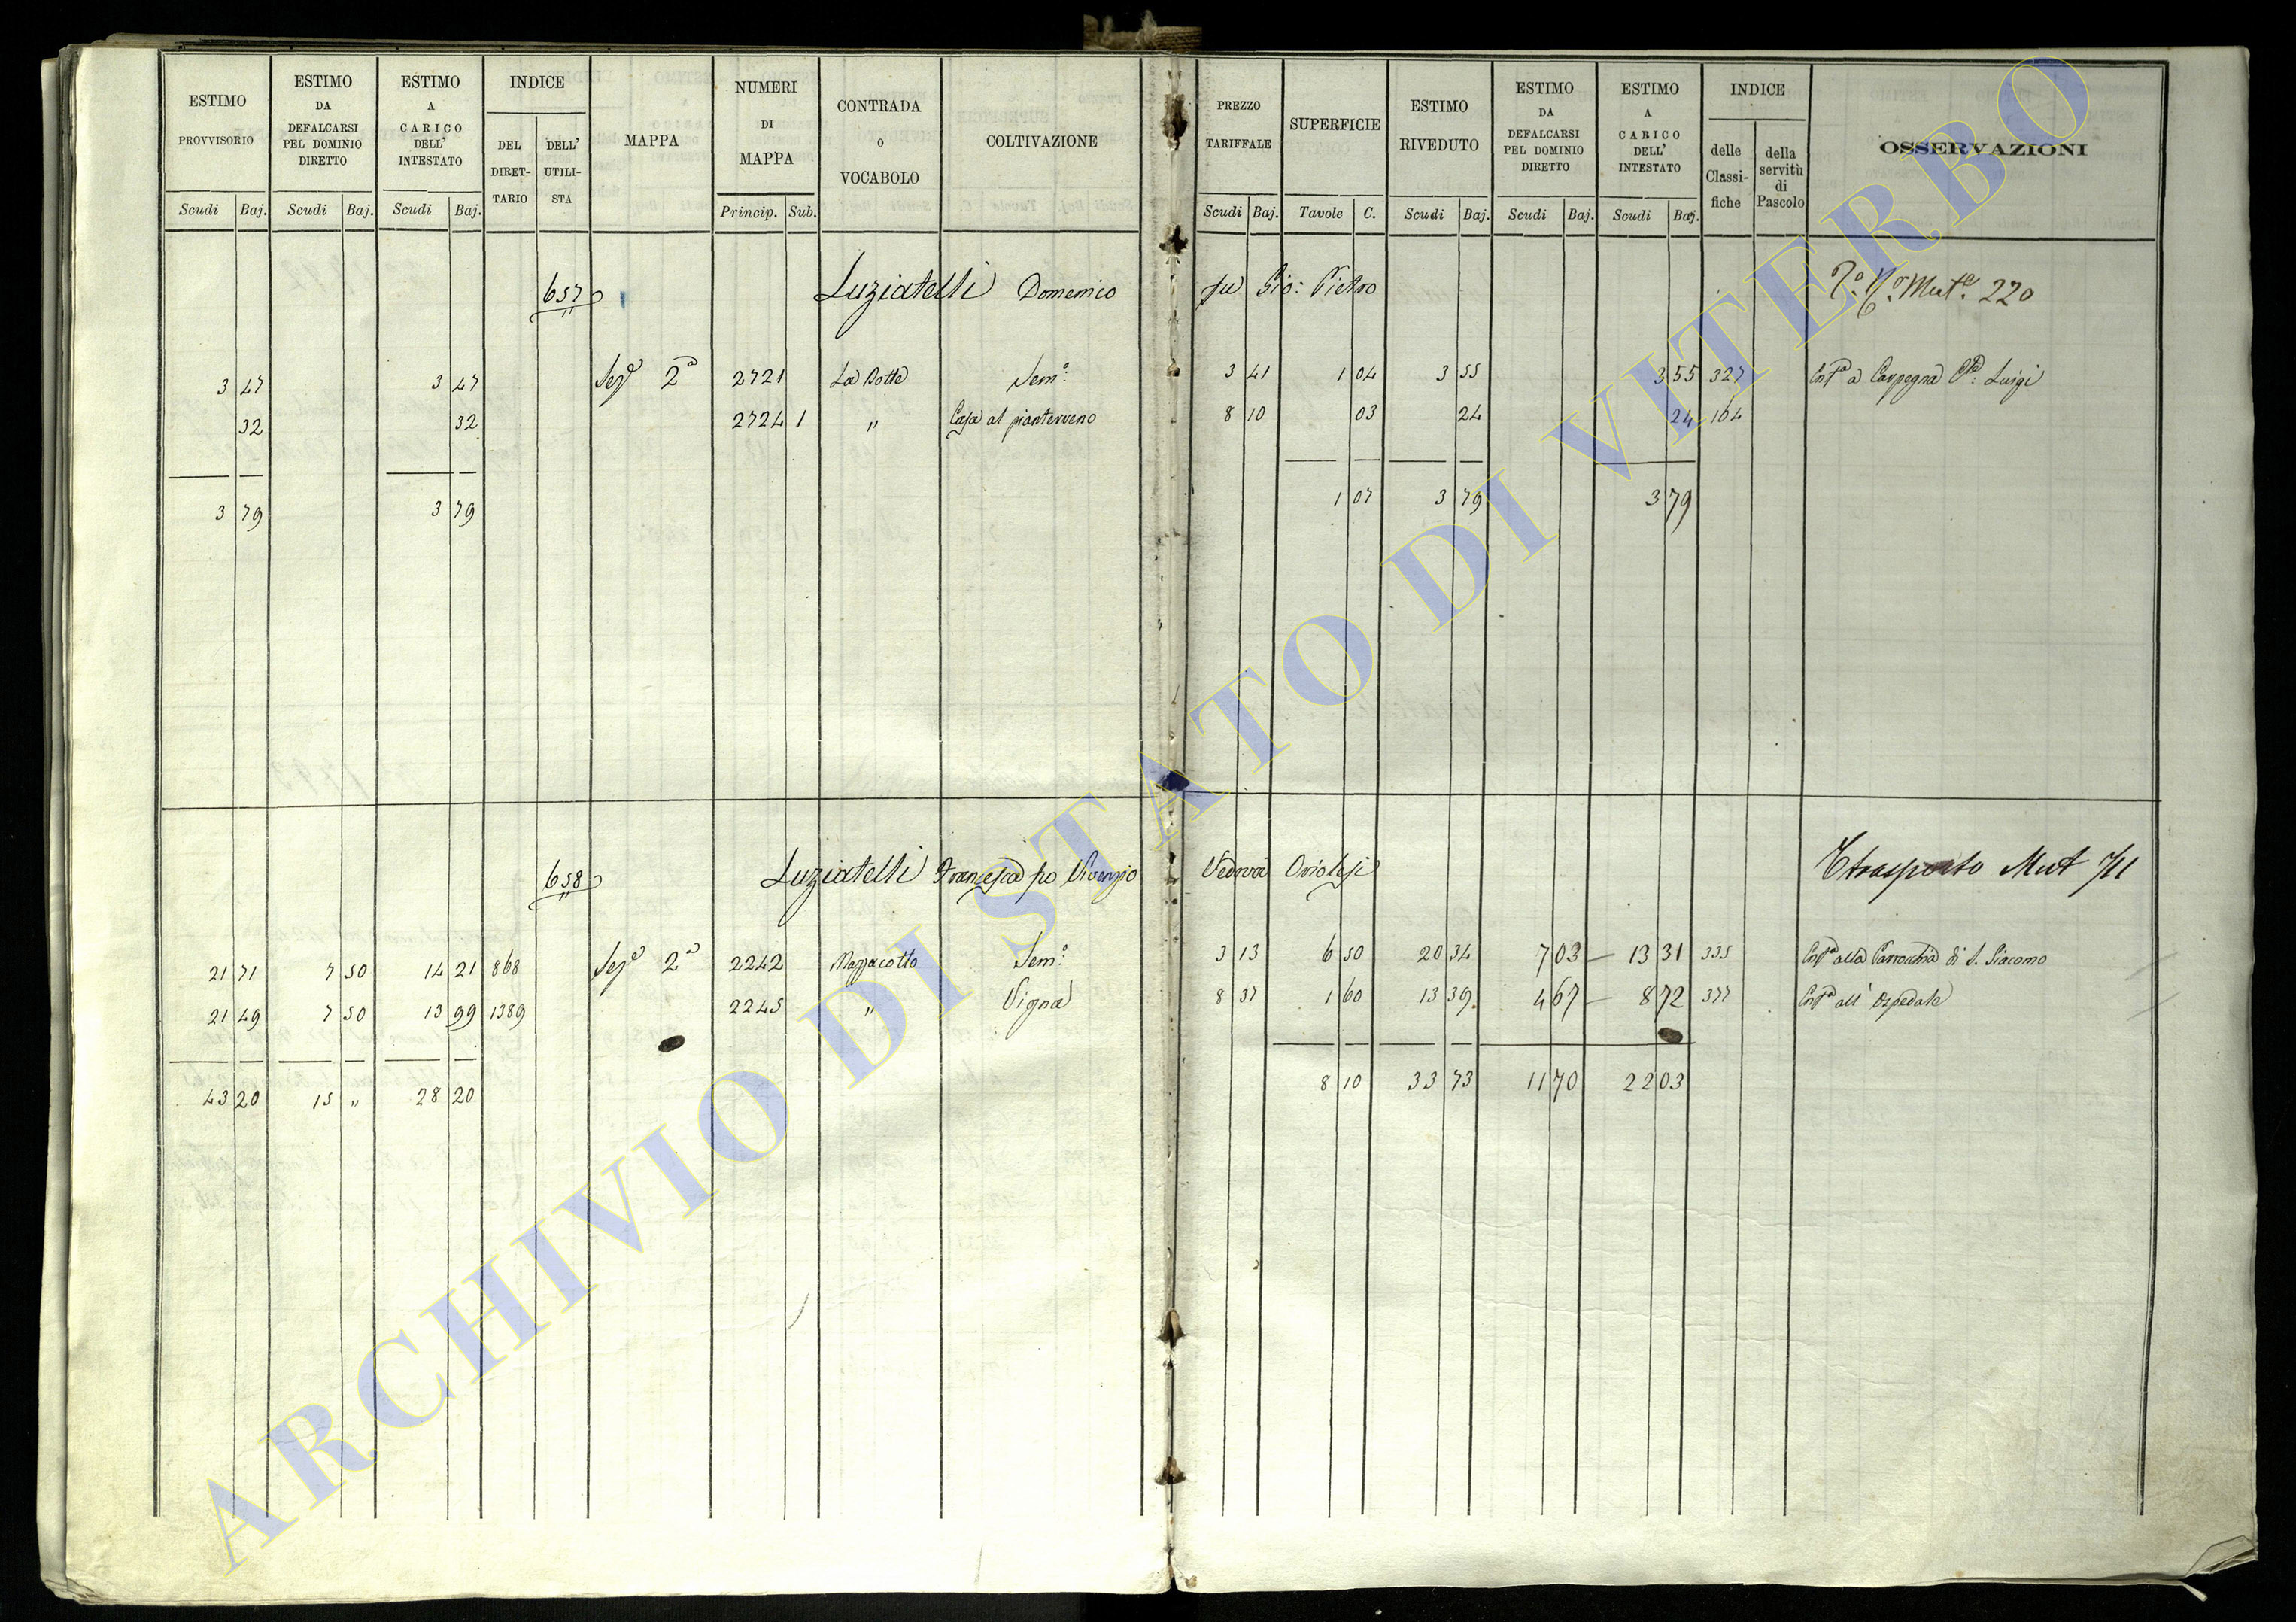 ESTIMO PROVVISORIO
ESTIMO DA DEFALCARSI PEL DOMINIO DIRETTO
ESTIMO A CARICO DELL' INTESTATO
INDICE
DEL DIRET-TARIO
DELL' UTILI-STA
MAPPA
NUMERI DI MAPPA
CONTRADA O VOCABOLO
COLTIVAZIONE
PREZZO TARIFFALE
SUPERFICIE
ESTIMO RIVEDUTO
ESTIMO DA DEFALCARSI PEL DOMINIO DIRETTO
ESTIMO A CARICO DELL' INTESTATO
INDICE
delle Classi-fiche
della servitù di Pascolo
OSSERVAZIONI
Scudi Baj. Scudi Baj. Scudi Baj. Princip. Sub. Scudi Baj. Tavole C. Scudi Baj. Scudi Baj. Scudi Baj.
657 Luziatelli Domenico fu Gio: Pietro Mut.e 220
3 47 3 47 Sez.e 2a 2721 La Botte Sem.o 3 41 1 04 3 55 3 55 327 Ent.a a Carpegna Cte: Luigi
32 32 2724 1 " Casa al pianterreno 8 10 03 24 24 164
3 79 3 79 1 07 3 79 3 79
658 Luziatelli Francesca po Vicenzo Vedova Oriolesi Trasporto Mut 711
21 71 7 50 14 21 868 Sez.e 2a 2242 Mazzacotto Sem.o 3 13 6 50 20 34 7 03 13 31 335 Ent.a alla Parrocchia di S. Giacomo
21 49 7 50 13 99 1389 2245 " Vigna 8 37 1 60 13 39 4 67 8 72 377 Ent.a all' Ospedale
43 20 15 " 28 20 8 10 33 73 11 70 22 03
ARCHIVIO DI STATO DI VITERBO